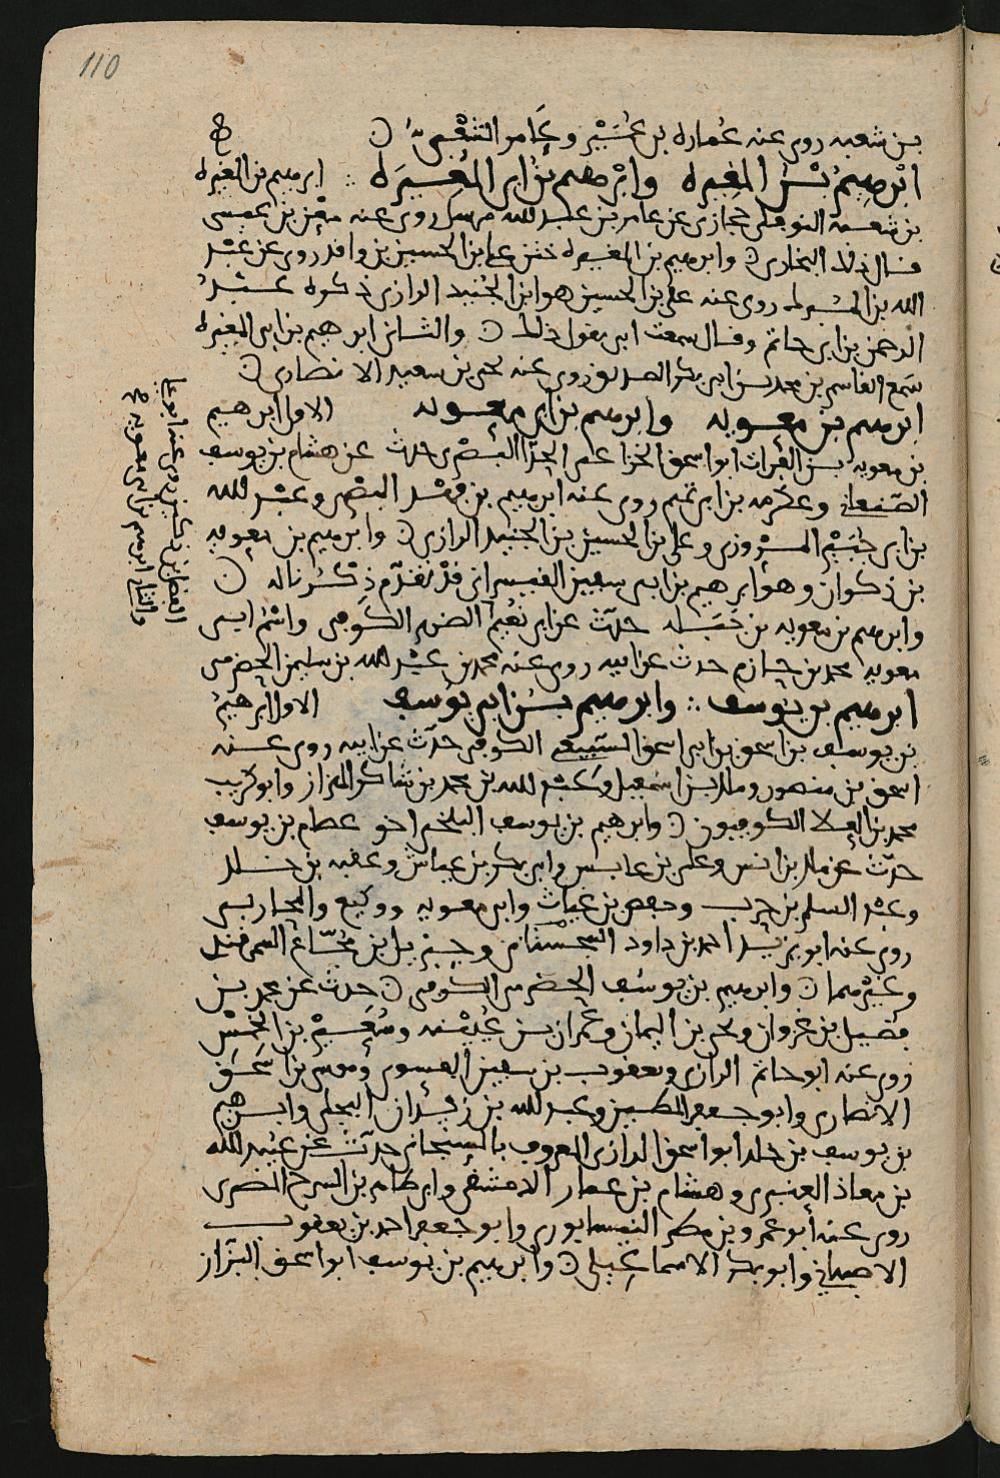 110
بن شعبه روى عنه عماره بن عمير وعامر الشعبي
ابرهيم بن المغيره وابرهيم بن ابي المغيره ابرهيم بن المغيره
بن شعبه النوفلي حجازي عن عامر بن عبد الله مرسل روى عنه معن بن عيسى
قال ذلك البخاري وابرهيم بن المغيره ختن علي بن الحسين بن واقد روى عن عبد
الله بن روى عنه علي بن الحسين هو ابن الجنيد الرازي ذكره عبد
الرحمن بن ابي حاتم وقال سمعت ابي يقول ذلك والثاني ابرهيم بن ابي المغيره
سمع القاسم بن محمد بن ابي بكر الصديق روى عنه يحيى بن سعيد الانصاري
ابرهيم بن معويه وابرهيم بن ابي معويه الاول ابرهيم
بن معويه بن الفرات ابو اسحق الخزاعي البصري حدث عن هشام بن يوسف
الصنعاني وعكرمه بن ابرهيم روى عنه ابرهيم بن فهد البصري وعبد الله
بن ابي المروزي وعلي بن الحسين بن الجنيد الرازي وابرهيم بن معويه
بن ذكوان وهو ابرهيم بن ابي سفين القيسراني قد تقدم ذكرنا له
وابرهيم بن معويه بن جبله حدث عن ابي نعيم الضرير الكوفي واسم ابي
معويه محمد بن خازم حدث عن ابيه روى عنه محمد بن عبد الله بن سليمن الحضرمي
ابرهيم بن يوسف وابرهيم بن ابي يوسف الاول ابرهيم
بن يوسف بن اسحق بن ابي اسحق السبيعي الكوفي حدث عن ابيه روى عنه
اسحق بن منصور وملك بن اسمعيل وعبد الله بن محمد بن شاكر البزاز وابو كريب
محمد بن العلا الكوفيون وابرهيم بن يوسف البلخي اخو عصام بن يوسف
حدث عن ملك بن انس وعلي بن عابس وابي بكر بن عياش وعقبه بن خلد
وعبد السلم بن حرب وحفص بن غياث وابي معويه ووكيع والمحاربي
روى عنه احمد بن داود السجستاني وجبريل بن السمرقندي
وغيرهما وابرهيم بن يوسف الحضرمي الكوفي حدث عن محمد بن
فضيل بن غزوان ويحيى بن اليمان وعمران بن عيينه وشعيب بن
روى عنه ابو حاتم الرازي ويعقوب بن سفين الفسوي وموسى بن اسحق
الانصاري وابو جعفر المطين وعبد الله بن زيدان البجلي وابرهيم
بن يوسف بن خلد ابو اسحق الرازي المعروف بالهسنجاني حدث عن عبيد الله
بن معاذ العنبري وهشام بن عمار الدمشقي وابي طاهر بن السرح المصري
روى عنه ابو عمرو بن مطر النيسابوري وابو جعفر احمد بن يعقوب
الاصبهاني وابو بكر الاسماعيلي وابرهيم بن يوسف ابو اسحق البزاز
والثاني ابرهيم بن ابي معويه